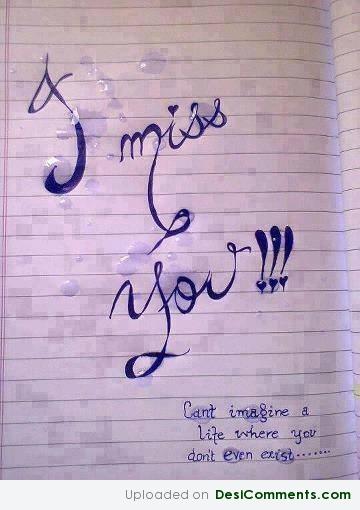 I miss
you!!!
Cant imagine a
life where you
don't even exist.......
Uploaded on DesiComments.com